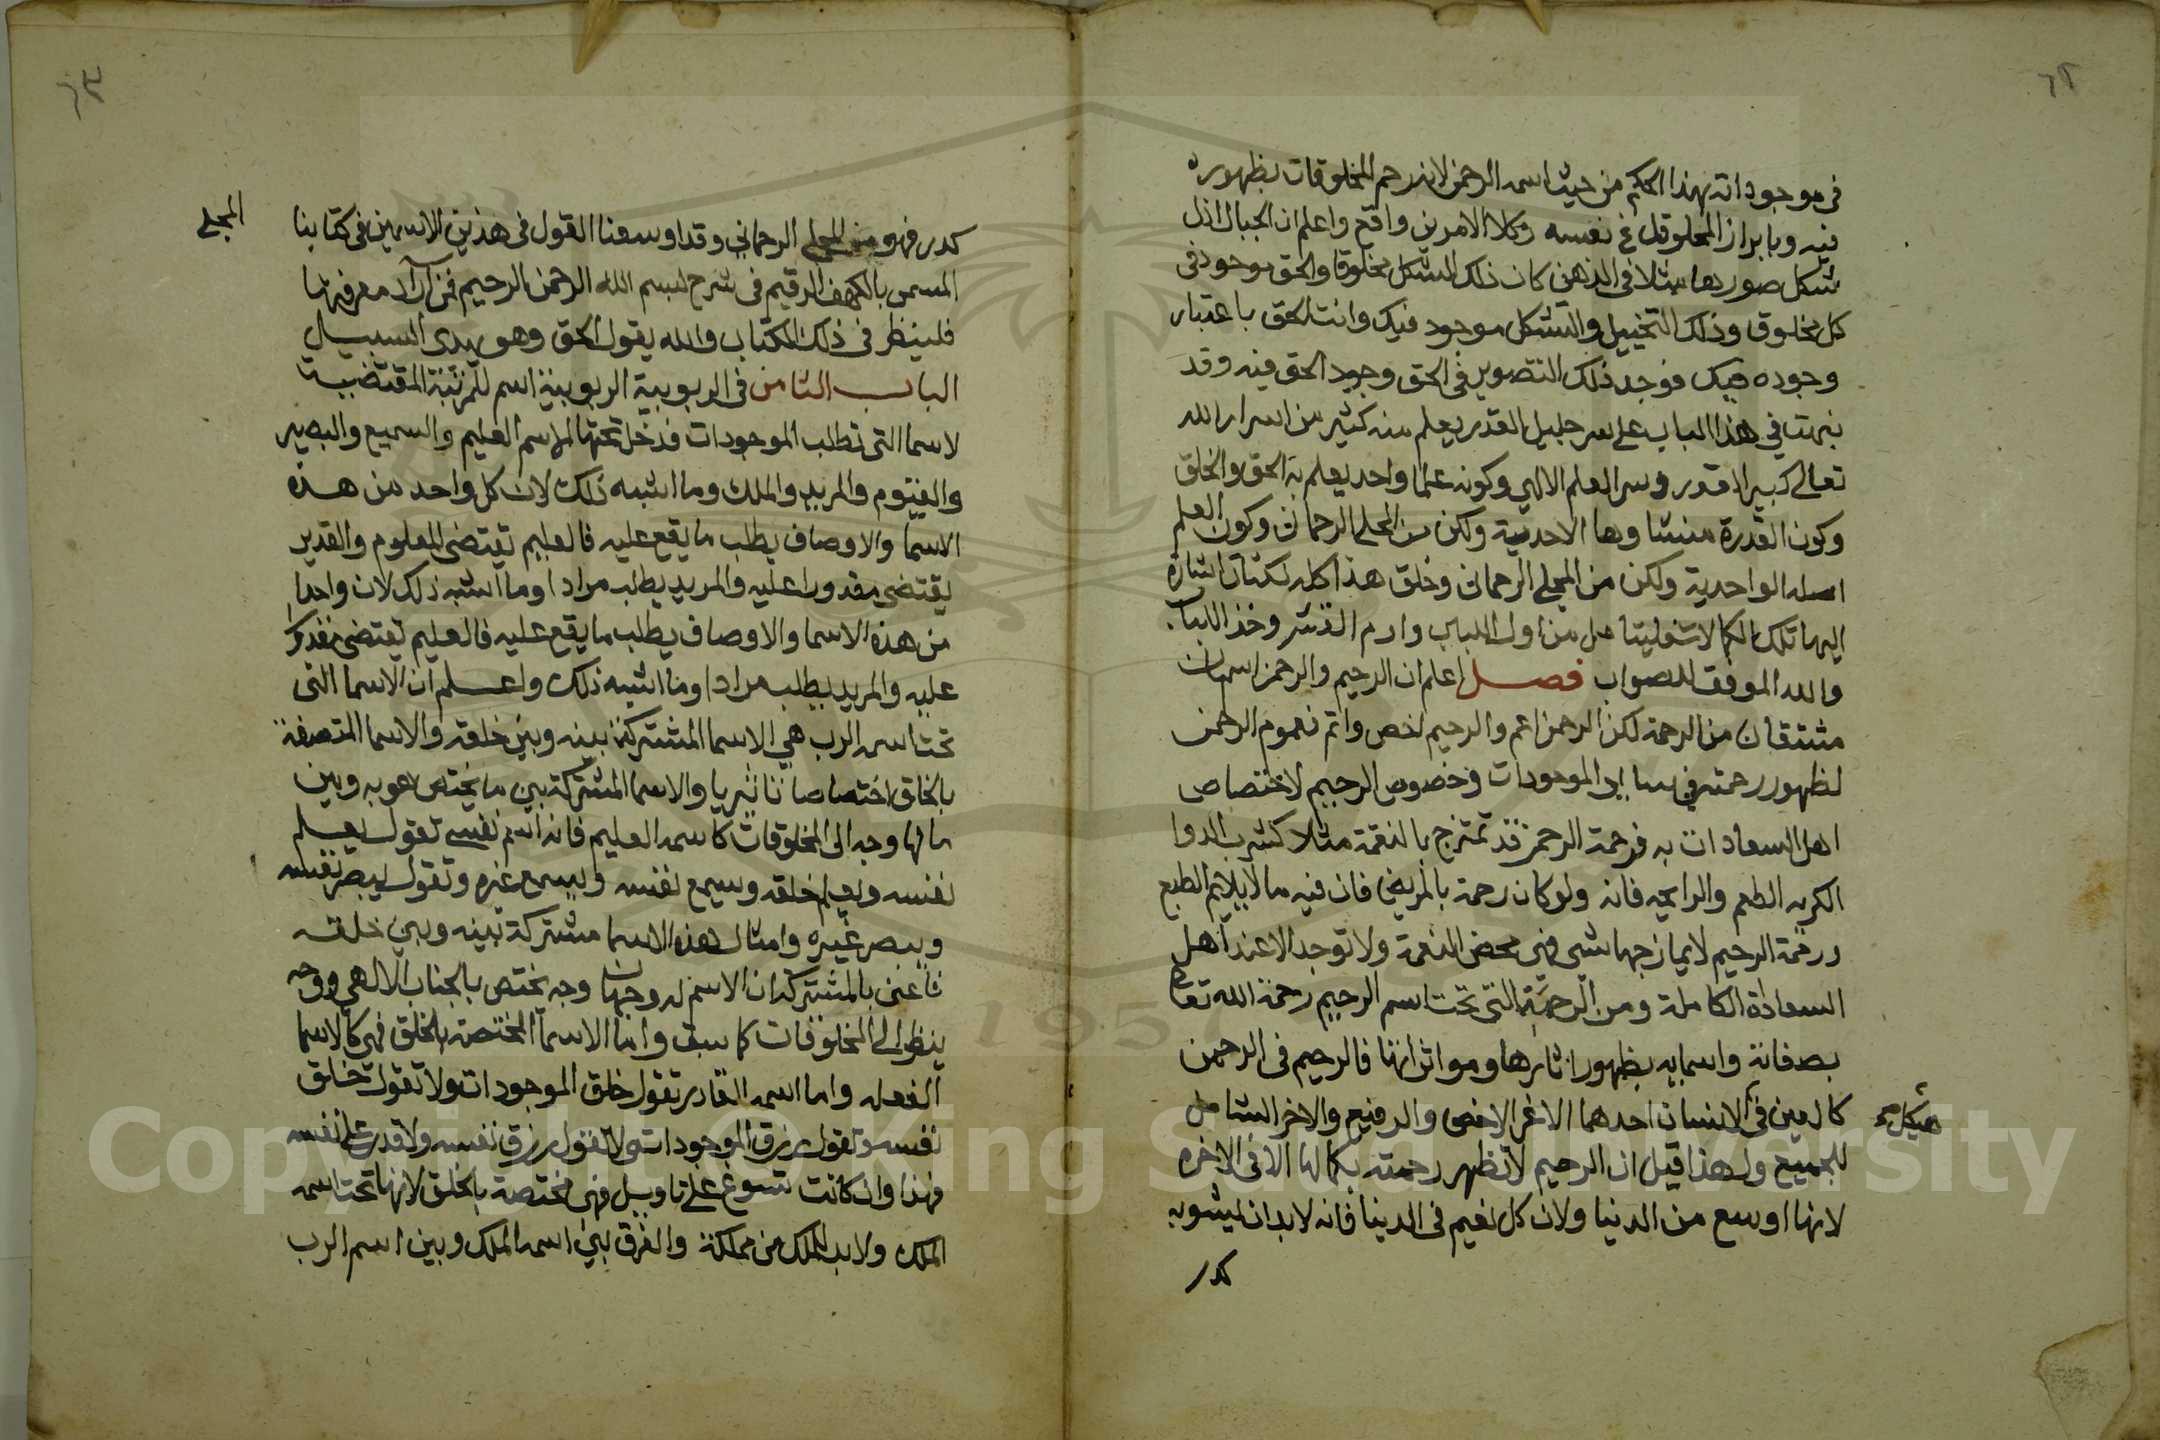 ٦٢
في موجوداته بهذا الحكم من حيث اسمه الرحمن لانه رحم المخلوقات بظهوره
فيه وبابراز المخلوقات في نفسه وكلا الامرين واقع واعلم ان الخيال اذا
شكل صورة ما مثلا في الذهن كان ذلك الشكل مخلوقا والحق موجود في
كل مخلوق وذلك التخييل والتشكل موجود فيك وانت الحق باعتبار
وجوده فيك فوجد ذلك التصوير في الحق وجود الحق فيه وقد
نبهت في هذا الباب على سر جليل القدر يعلم منه كثير من اسرار الله
تعالى كسر القدر وسر العلم الالهي وكونه علما واحد يعلم به الحق والخلق
وكون القدرة منشاوها الاحدية ولكن من المجلى الرحماني وكون العلم
اصله الواحدية ولكن من المجلى الرحماني وخلق هذا كله نكتات اشارة
اليها تلك الكمالات فليتامل من اول الباب وارم القشر وخذ اللباب
والله الموفق للصواب فصل اعلم ان الرحيم والرحمن اسمان
مشتقان من الرحمة لكن الرحمن اعم والرحيم اخص واتم فعموم الرحمن
لظهور رحمته في ساير الموجودات وخصوص الرحيم لاختصاص
اهل السعادات به فرحمة الرحمن قد تمتزج بالنقمة مثلا كشرب الدوا
الكريه الطعم والرايحه فانه ولو كان رحمة بالمريض فان فيه ما لا يلايم الطبع
ورحمة الرحيم لا يمازجها شي فهي محض النعمة ولا توجد الا عند اهل
السعادة الكاملة ومن الرحمة التي تحت اسم الرحيم رحمة الله تعالى
بصفاته واسمايه بظهور اثارها ومواثراتها فالرحيم في الرحمن
كالعين في الانسان احدهما الاعز الاخص والرفيع والاخر الشامل
هيكل صح
للجميع ولهذا قيل ان الرحيم لا تظهر رحمته بكمالها الا في الاخره
لانها اوسع من الدنيا ولان كل نعيم في الدينا فانه لابد ان يشوبه
كدر
٦٣
كدر فهو من المجلى الرحماني وقد اوسعنا القول في هذين الاسمين في كتابنا
المجلى
المسمى بالكهف والرقيم في شرح بسم الله الرحمن الرحيم فمن اراد معرفتهما
فلينظر في ذلك الكتاب والله يقول الحق وهو يهدي السبيل
الباب الثامن في الربوبية الربوبية اسم للمرتبة المقتضية
لاسما التي تطلب الموجودات فدخل تحتها الاسم العليم والسميع والبصير
والقيوم والمريد والملك وما اشبه ذلك لان كل واحد من هذه
الاسما والاوصاف يطلب ما يقع عليه فالعليم يقتضى المعلوم والقدير
يقتضى مقدورا عليه والمريد يطلب مرادا وما اشبه ذلك لان واحدا
من هذه الاسما والاوصاف يطلب ما يقع عليه فالعليم يقتضى مقدورا
عليه والمريد يطلب مرادا وما اشبه ذلك واعلم ان الاسما التى
تحت اسمه الرب هي الاسما المشتركة بينه وبين خلقه والاسما المتصفة
بالخلق اختصاصا تاثيريا والاسما المشتركة بين ما يختص هو به وبين
ما لها وجه الى المخلوقات كاسمه العليم فانه اسم نفسي تقول يعلم
نفسه ويعلم خلقه وسيمع نفسه ويسمع غيره وتقول يبصر نفسه
ويبصر غيره وامثال هذه الاسما مشتركة بينه وبين خلقه
فاعني بالمشتركة ان الاسم له وجهان وجه يختص بالجناب الالهي ووجه
ينظر الى المخلوقات كما سبق واما الاسما المختصة بالخلق فهي كالاسما
الفعليه واما اسمه القادر تقول خلق الموجودات ولا تقول خلق
نفسه وتقول رزق الموجودات ولا تقول رزق نفسه ولا قدر على نفسه
فهذا وان كانت تسوغ على تاويل فهي مختصة بالخلق لانها تحت اسمه
الملك ولابد للملك من مملكة والفرق بين اسمه الملك وبين اسم الرب
Copyright © King Saud University
1957